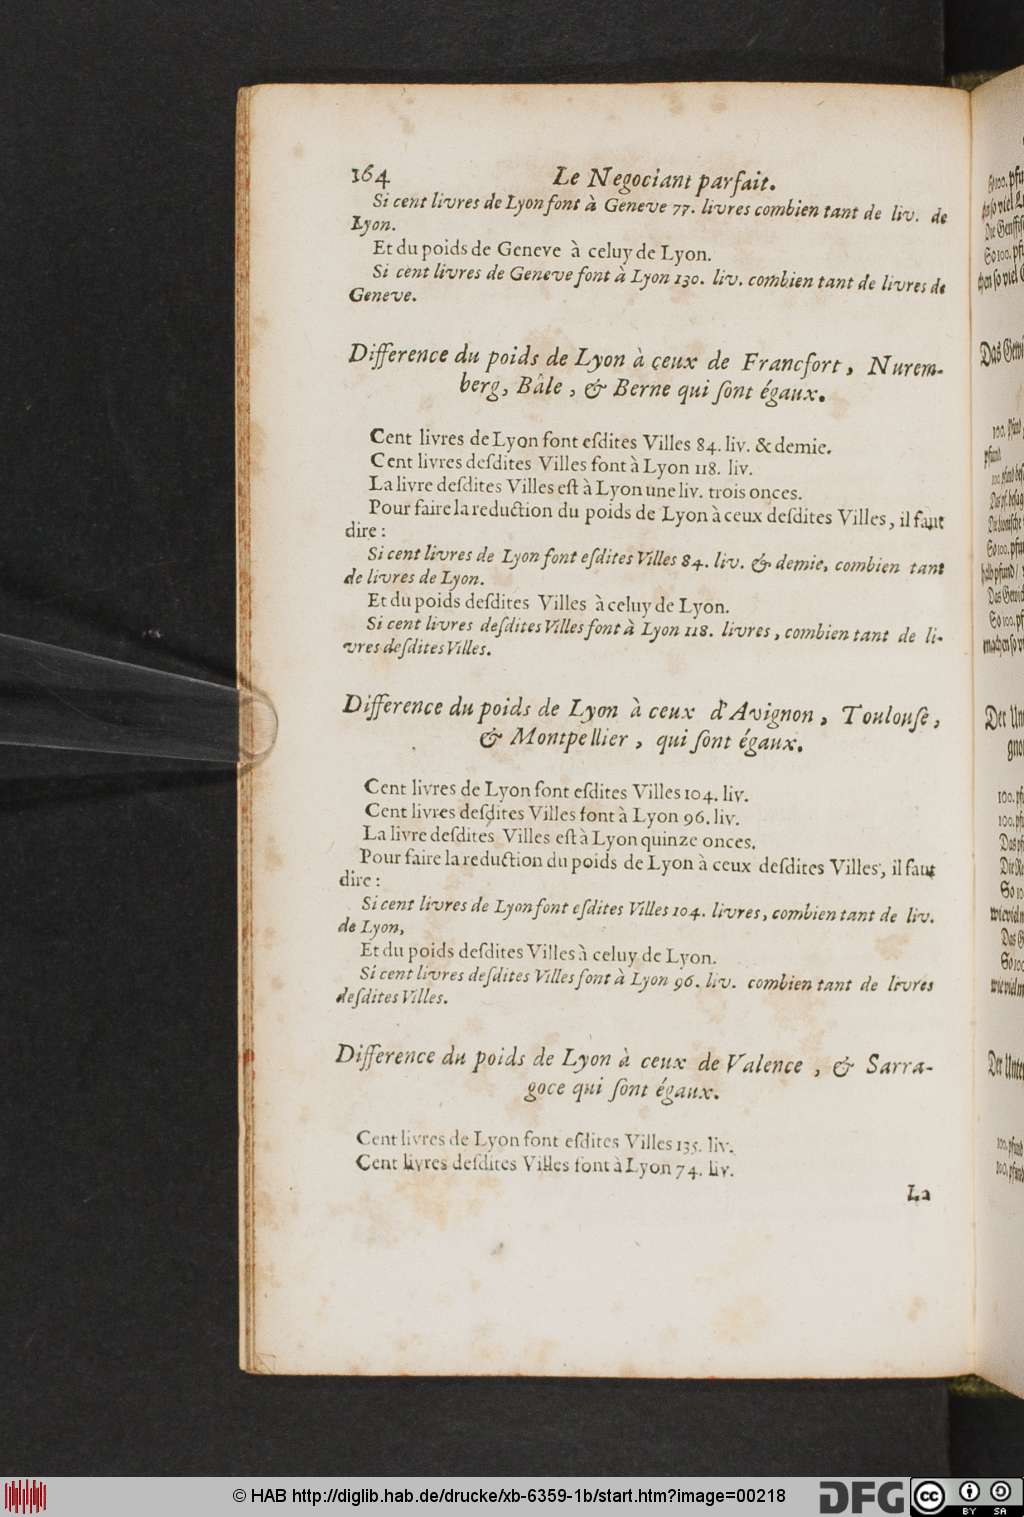 164 Le Negociant parfait.
Si cent livres de Lyon font à Geneve 77. livres combien tant de liv. de
Lyon.
Et du poids de Geneve à celuy de Lyon.
Si cent livres de Geneve font à Lyon 130. liv. combien tant de livres de
Geneve.
Difference du poids de Lyon à ceux de Francfort, Nurem-
berg, Bâle, & Berne qui ſont égaux.
Cent livres de Lyon font eſdites Villes 84. liv. & demie.
Cent livres deſdites Villes font à Lyon 118. liv.
La livre deſdites Villes eſt à Lyon une liv. trois onces.
Pour faire la reduction du poids de Lyon à ceux deſdites Villes, il faut
dire:
Si cent livres de Lyon font eſdites Villes 84. liv. & demie, combien tant
de livres de Lyon.
Et du poids deſdites Villes à celuy de Lyon.
Si cent livres deſdites Villes font à Lyon 118. livres, combien tant de li-
vres deſdites Villes.
Difference du poids de Lyon à ceux d'Avignon, Toulouſe,
& Montpellier, qui ſont égaux.
Cent livres de Lyon font eſdites Villes 104. liv.
Cent livres deſdites Villes font à Lyon 96. liv.
La livre deſdites Villes eſt à Lyon quinze onces.
Pour faire la reduction du poids de Lyon à ceux deſdites Villes, il faut
dire:
Si cent livres de Lyon font eſdites Villes 104. livres, combien tant de liv.
de Lyon,
Et du poids deſdites Villes à celuy de Lyon.
Si cent livres deſdites Villes font à Lyon 96. liv. combien tant de livres
deſdites Villes.
Difference du poids de Lyon à ceux de Valence, & Sarra-
goce qui ſont égaux.
Cent livres de Lyon font eſdites Villes 135. liv.
Cent livres deſdites Villes font à Lyon 74. liv.
La
© HAB http://diglib.hab.de/drucke/xb-6359-1b/start.htm?image=00218
DFG
cc BY SA